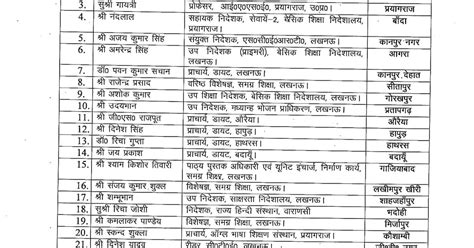 3. सुश्री गायत्री प्रोफेसर, आई०ए०एस०ई०, प्रयागराज, उ०प्र०। प्रयागराज
4. श्री नंदलाल सहायक निदेशक, सेवायें-2, बेसिक शिक्षा निदेशालय, प्रयागराज। बाँदा
5. श्री अजय कुमार सिंह संयुक्त निदेशक, एस०सी०ई०आर०टी०, लखनऊ। कानपुर नगर
6. श्री अमरेन्द्र सिंह उप निदेशक (प्राइमरी), बेसिक शिक्षा निदेशालय, लखनऊ। आगरा
7. डॉ० पवन कुमार सचान प्राचार्य, डायट, लखनऊ। कानपुर देहात
8. श्री राजेन्द्र प्रसाद वरिष्ठ विशेषज्ञ, समग्र शिक्षा, लखनऊ। सीतापुर
9. श्री अशोक कुमार उप शिक्षा निदेशक, बेसिक शिक्षा निदेशालय, लखनऊ। गोरखपुर
10. श्री उदयभान उप निदेशक, मध्यान्ह भोजन प्राधिकरण, लखनऊ। प्रतापगढ़
11. श्री जी०एस० राजपूत प्राचार्य, डायट, औरैया। औरैया
12. श्री दिनेश सिंह प्राचार्य, डायट, हापुड़ हापुड़
13. डॉ० रिचा गुप्ता प्राचार्य, डायट, हाथरस। हाथरस
14. श्री जय प्रकाश प्राचार्य, डायट, बदायूँ बदायूँ
15. श्री श्याम किशोर तिवारी पाठ्य पुस्तक अधिकारी एवं यूनिट इंचार्ज, निर्माण कार्य, समग्र शिक्षा, लखनऊ। गाजियाबाद
16. श्री संजय कुमार शुक्ल विशेषज्ञ, समग्र शिक्षा, लखनऊ। लखीमपुर खीरी
17. श्री शम्भूभान उप निदेशक, साक्षरता निदेशालय, लखनऊ। शाहजहाँपुर
18. सुश्री रिचा जोशी निदेशक, राज्य हिन्दी संस्थान, वाराणसी भदोही
19. श्री कमलाकर पाण्डेय विशेषज्ञ, समग्र शिक्षा, लखनऊ। मिर्जापुर
20. श्री स्कन्द शुक्ला प्राचार्य, ऑंग्ल भाषा शिक्षण संस्थान, प्रयागराज। कौशाम्बी
21. श्री दिनेश यादव